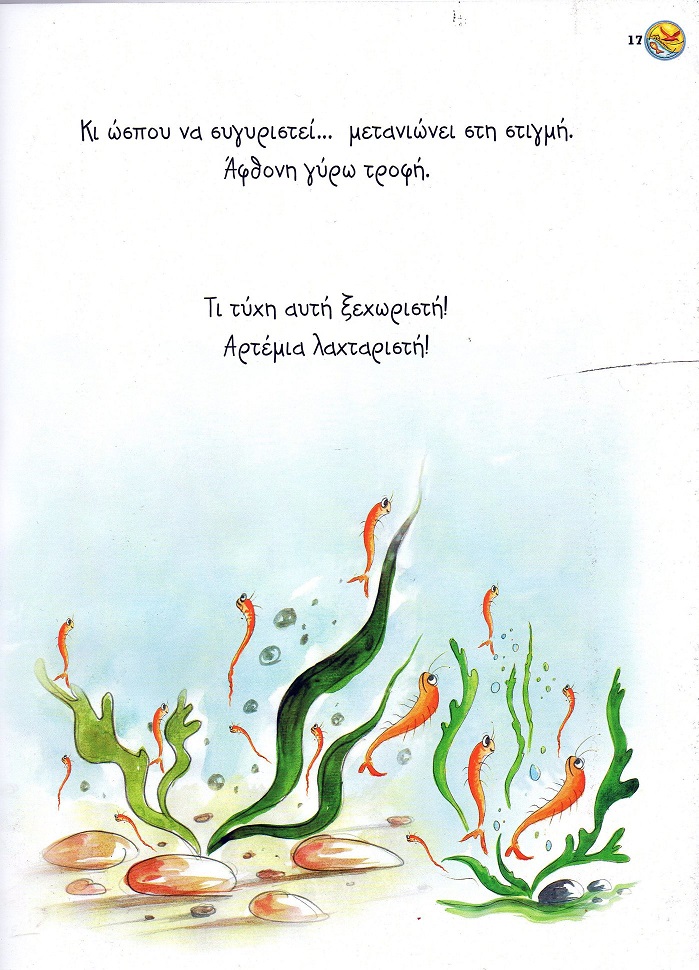 17
Κι ώσπου να συγυριστεί... μετανιώνει στη στιγμή.
Άφθονη γύρω τροφή.
Τι τύχη αυτή ξεχωριστή!
Αρτέμια λαχταριστή!